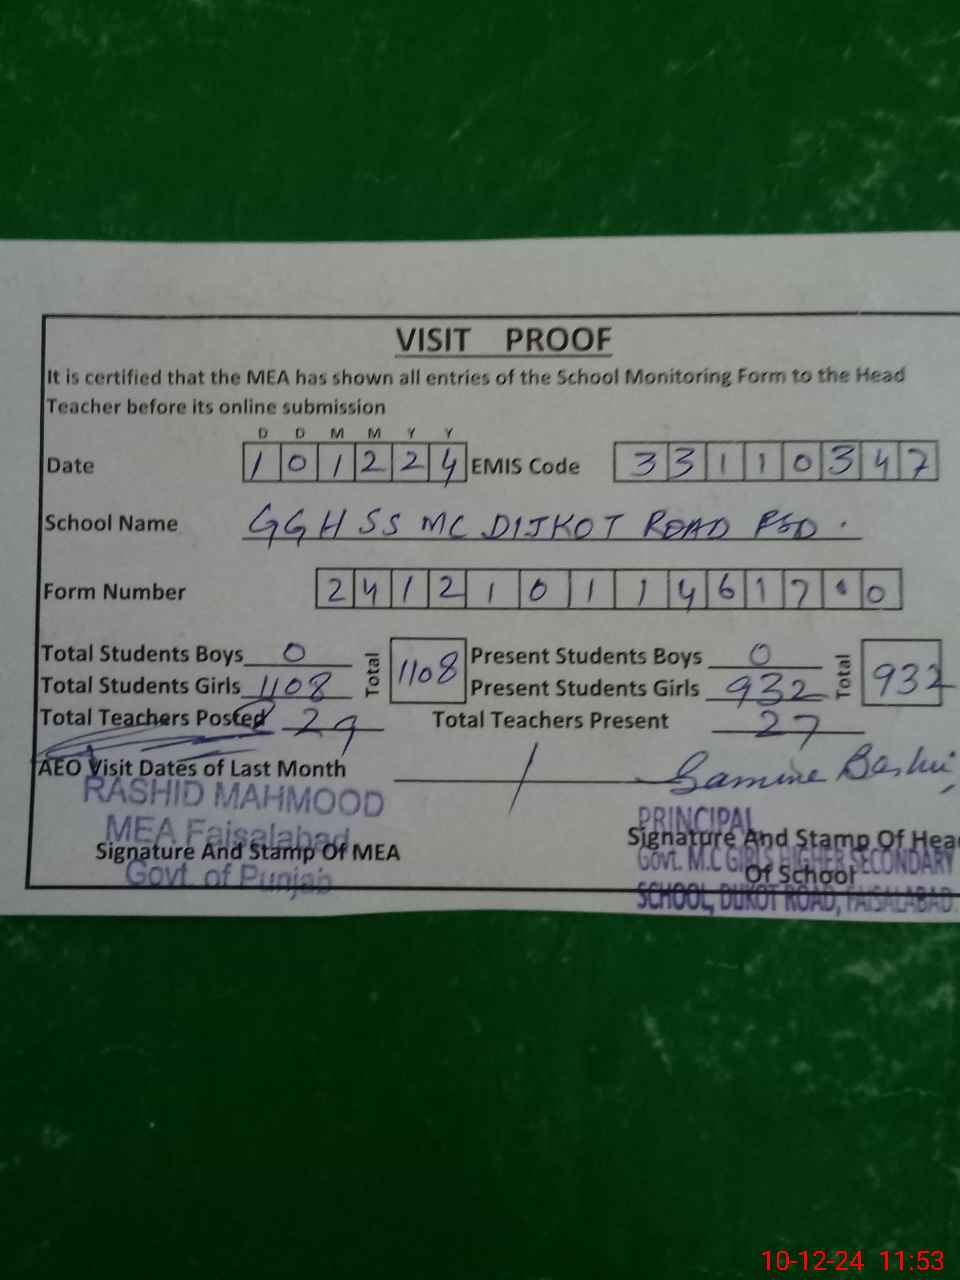 VISIT PROOF
It is certified that the MEA has shown all entries of the School Monitoring Form to the Head
Teacher before its online submission
D D M M Y Y
Date 1 0 1 2 2 4 EMIS Code 3 3 1 1 0 3 4 7
School Name GGHSS MC DIJKOT ROAD FSD.
Form Number 2 4 1 2 1 0 1 1 4 6 1 7 0 0
Total Students Boys 0 Total 1108 Present Students Boys 0 Total 932
Total Students Girls 1108 Present Students Girls 932
Total Teachers Posted 29 Total Teachers Present 27
AEO Visit Dates of Last Month /
RASHID MAHMOOD
MEA Faisalabad
Signature And Stamp Of MEA
Govt. of Punjab
PRINCIPAL
Signature And Stamp Of Head
Govt. M.C GIRLS HIGHER SECONDARY
Of School
SCHOOL, DIJKOT ROAD, FAISALABAD.
10-12-24 11:53